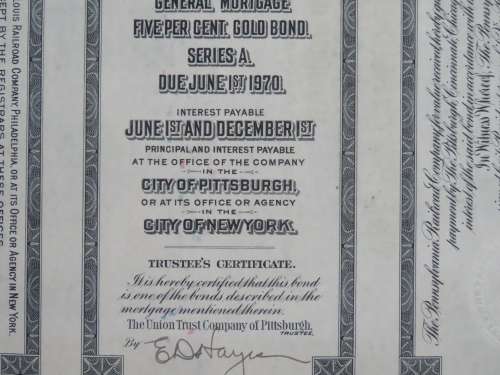 GENERAL, MORTGAGE,
FIVE PER CENT. GOLD BOND.
SERIES A.
DUE JUNE 1ST 1970.
INTEREST PAYABLE
JUNE 1ST AND DECEMBER 1ST
PRINCIPAL AND INTEREST PAYABLE
AT THE OFFICE OF THE COMPANY
IN THE
CITY OF PITTSBURGH,
OR AT ITS OFFICE OR AGENCY
IN THE
CITY OF NEW YORK.
TRUSTEE'S CERTIFICATE.
It is hereby certified that this bond
is one of the bonds described in the
mortgage mentioned therein.
The Union Trust Company of Pittsburgh,
TRUSTEE,
By
LOUIS RAILROAD COMPANY, PHILADELPHIA, OR AT ITS OFFICE OR AGENCY IN NEW YORK.
EPT BY THE REGISTRARS AT THESE OFFICES
The Pennsylvania Railroad Company, for value received, hereby
prepared by The Pittsburgh, Cincinnati, Chicag
interest of the said bond in accordance with
In Witness Whereof, The Penns